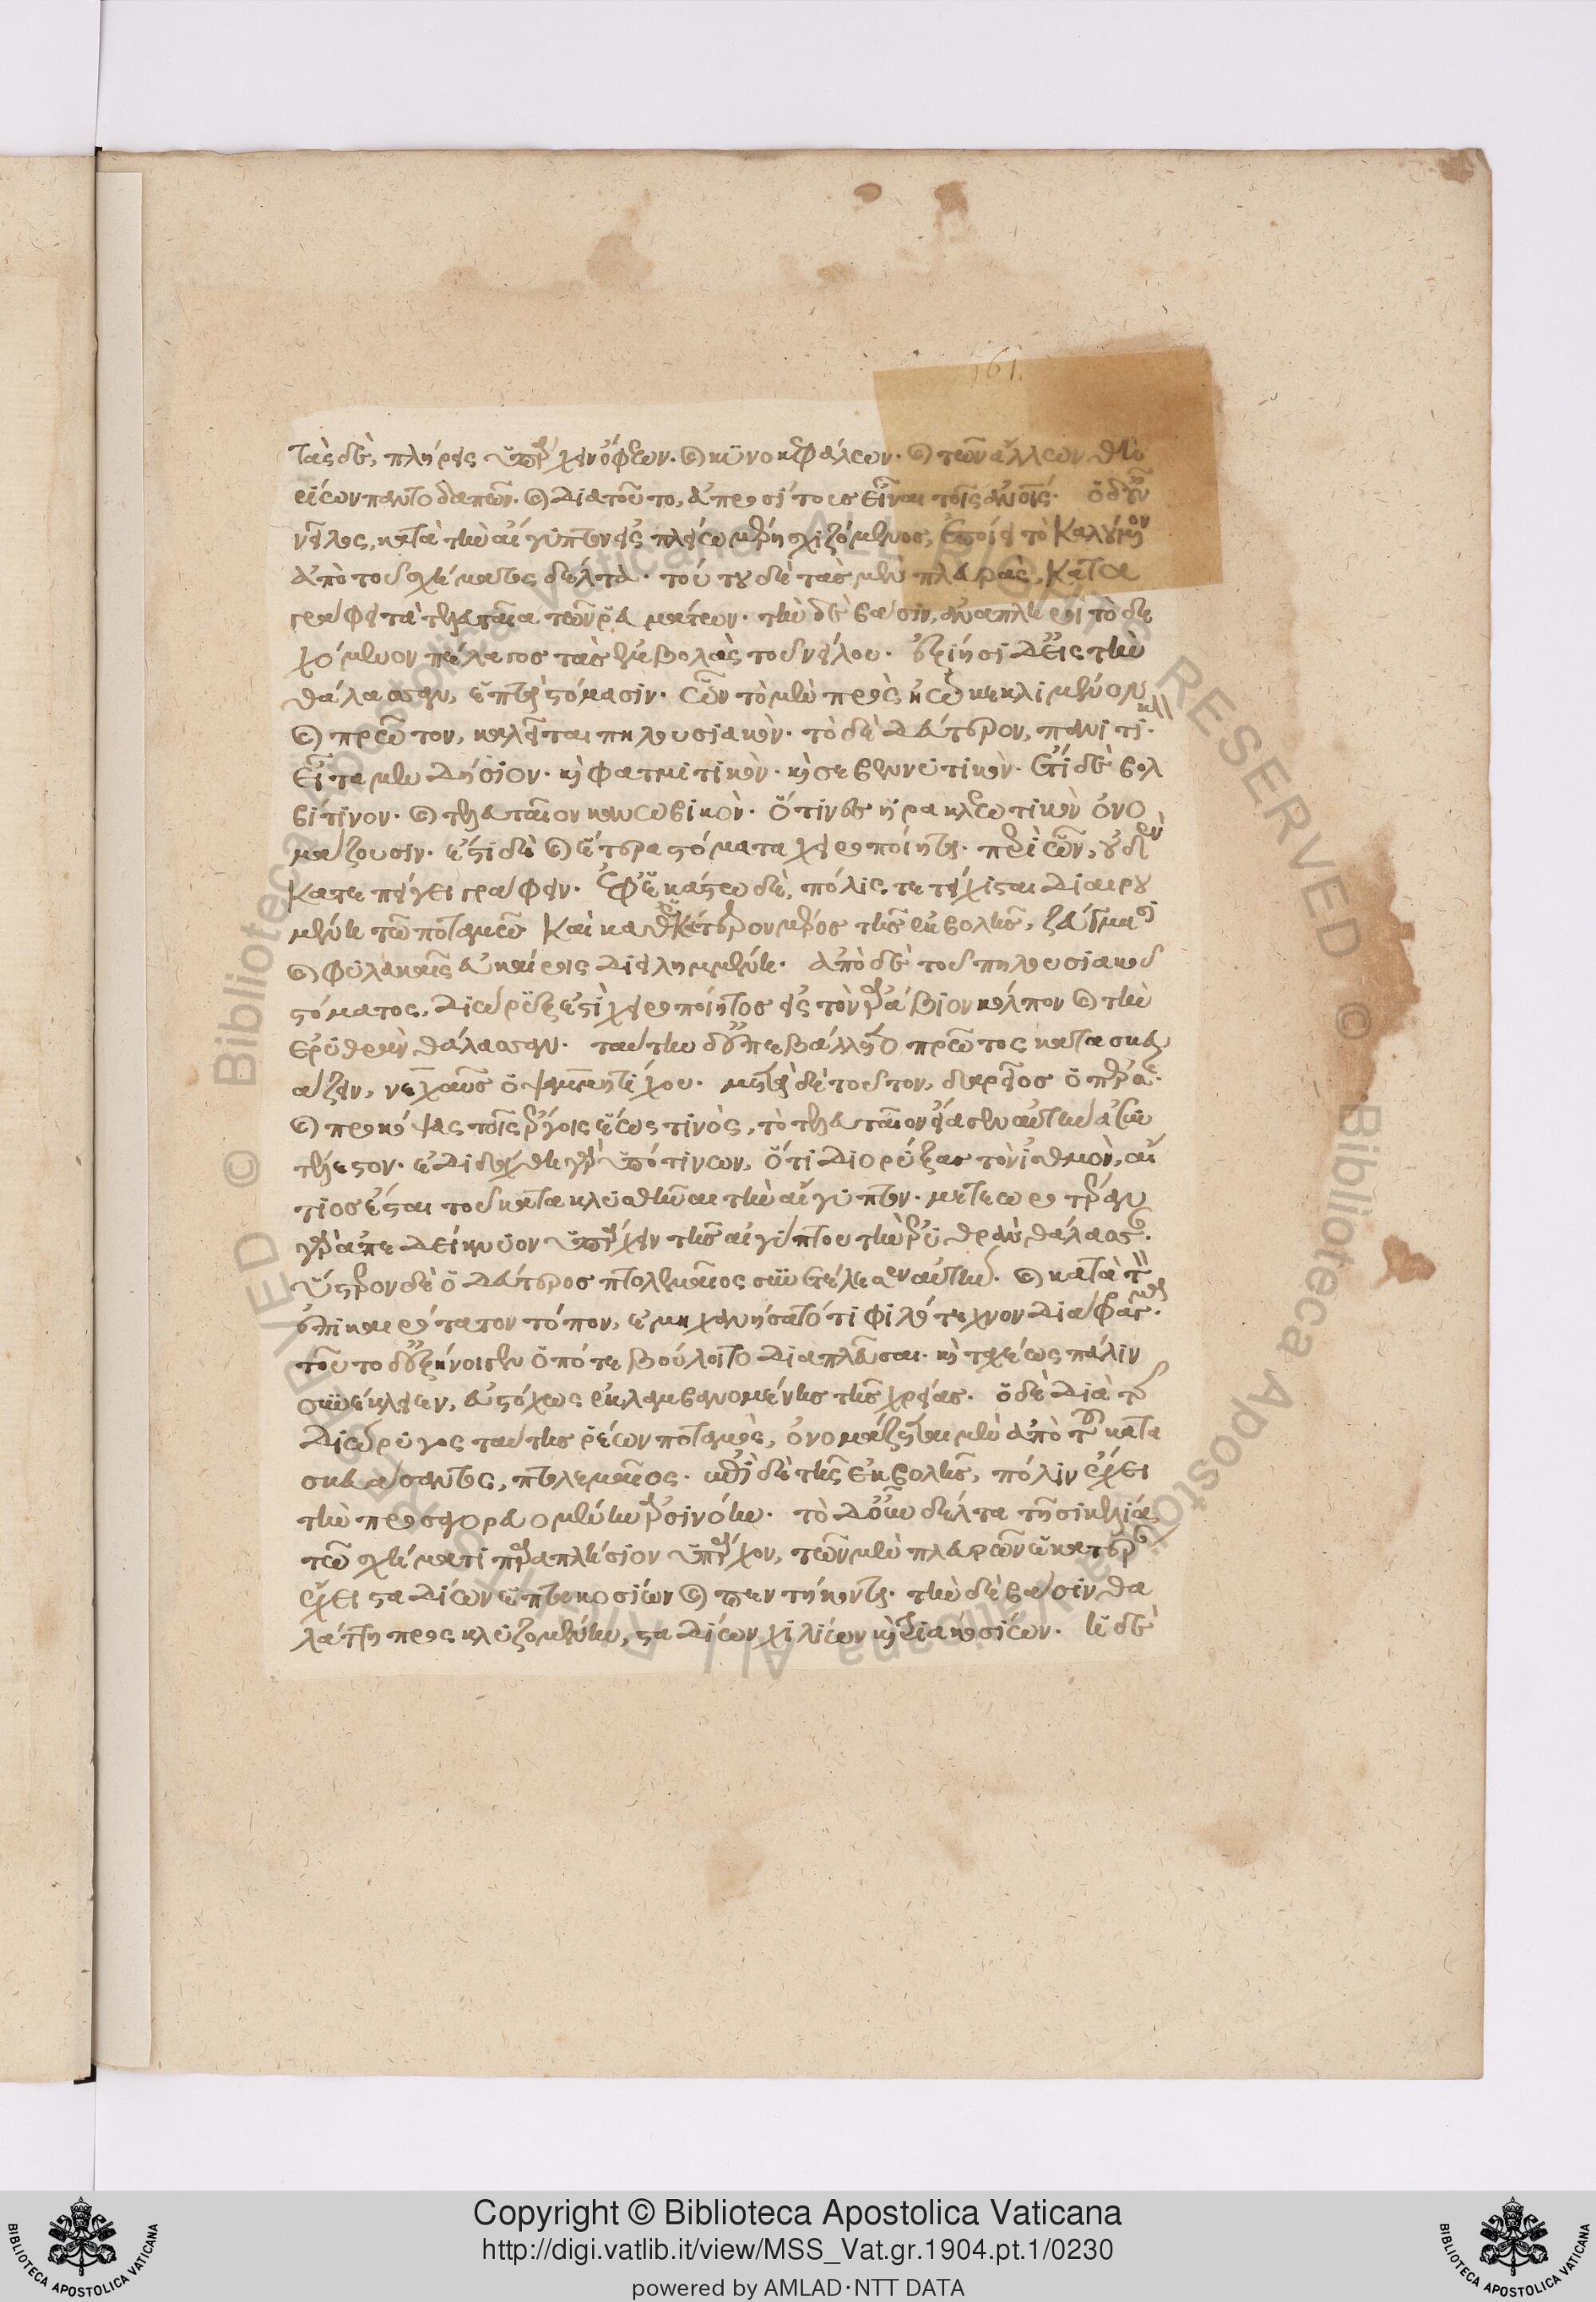 161.
τὰς δὲ, πλήρεις ὑπάρχειν ὄφεων. καὶ κυνοκεφάλων. καὶ τῶν ἄλλων θη
ρίων παντοδαπῶν. καὶ διὰ τοῦτο, ἀπροσίτους εἶναι τοῖς ἀνοις. ὁ δ' οὖν
νεῖλος, κατὰ τὴν αἴγυπτον εἰς πλείω μέρη σχιζόμενος, ποιεῖ τὸ καλούμενον
ἀπὸ τοῦ σχήματος δέλτα. τούτου δὲ τὰς μὲν πλευρὰς, κατα
γράφει τὰ τελευταῖα τῶν ῥευμάτων. τὴν δὲ βάσιν, ἀναπληροῖ τὸ δε
χόμενον πέλαγος τὰς ἐκβολὰς τοῦ νείλου. ἐξίησι δ' εἰς τὴν
θάλασσαν, ἑπτὰ στόμασιν. ὧν τὸ μὲν πρὸς ἕω κεκλιμένον
καὶ πρῶτον, καλεῖται πηλουσιακὸν. τὸ δὲ δεύτερον, τανιτι
κὸν
εἶτα μενδήσιον. καὶ φατμιτικὸν. καὶ σεβεννυτικὸν. ἔτι δὲ βολ
βίτινον. καὶ τελευταῖον κανωβικὸν. ὅ τινες ἡρακλεωτικὸν ὀνο
μάζουσιν. ἔστι δὲ καὶ ἕτερα στόματα χειροποίητα. περὶ ὧν, οὐδὲν
κατεπείγει γράφειν. ἐφ' ἑκάστω δὲ, πόλις τετείχισται διαιρου
μένη τῶ ποταμῶ καὶ καθ' ἑκάτερον μέρος τῆς ἐκβολῆς, ζεύγμασι
καὶ φυλακαῖς εὐκαίροις διειλημμένη. ἀπὸ δὲ τοῦ πηλουσιακοῦ
στόματος, διῶρυξ ἐστὶ χειροποίητος εἰς τὸν ἀράβιον κόλπον καὶ τὴν
ἐρυθρὰν θάλασσαν. ταύτην δ' ἐπεβάλλετο πρῶτος κατασκευ
άζειν, νεχαῦς ὁ ψαμμητίχου. μετὰ δὲ τοῦτον, δαρεῖος ὁ πέρσης.
καὶ προκόψας τοῖς ἔργοις ἕως τινὸς, τὸ τελευταῖον εἴασεν αὐτὴν ἀσυν
τέλεστον. ἐδιδάχθη γὰρ ὑπό τινων, ὅτι διορύξας τὸν ἰσθμὸν, αἴ
τιος ἔσται τοῦ κατακλυσθῆναι τὴν αἴγυπτον. μετεωροτέραν
γὰρ ἀπεδείκνυον ὑπάρχειν τῆς αἰγύπτου τὴν ἐρυθρὰν θάλασσαν.
ὕστερον δὲ ὁ δεύτερος πτολεμαῖος συνετέλεσεν αὐτὴν. καὶ κατὰ τὸν
ἐπικαιρότατον τόπον, ἐμηχανήσατό τι φιλότεχνον διάφραγμα.
τοῦτο δ' ἐξήνοιγεν ὁπότε βούλοιτο διαπλεῦσαι. καὶ ταχέως πάλιν
συνέκλειεν, εὐστόχως ἐκλαμβανομένης τῆς χρείας. ὁ δὲ διὰ τῆς
διώρυγος ταύτης ῥέων ποταμὸς, ὀνομάζεται μὲν ἀπὸ τοῦ κατα
σκευάσαντος, πτολεμαῖος. ἐπὶ δὲ τῆς ἐκβολῆς, πόλιν ἔχει
τὴν προσαγορευομένην ἀρσινόην. τὸ δ' οὖν δέλτα τῇ σικελία
τῶ σχήματι παραπλήσιον ὑπάρχον, τῶν μὲν πλευρῶν ἑκατέραν
ἔχει σταδίων ἑπτακοσίων καὶ πεντήκοντα. τὴν δὲ βάσιν θα
λάττῃ προσκλυζομένην, σταδίων χιλίων καὶ τριακοσίων. ἡ δὲ
Copyright © Biblioteca Apostolica Vaticana
http://digi.vatlib.it/view/MSS_Vat.gr.1904.pt.1/0230
powered by AMLAD·NTT DATA